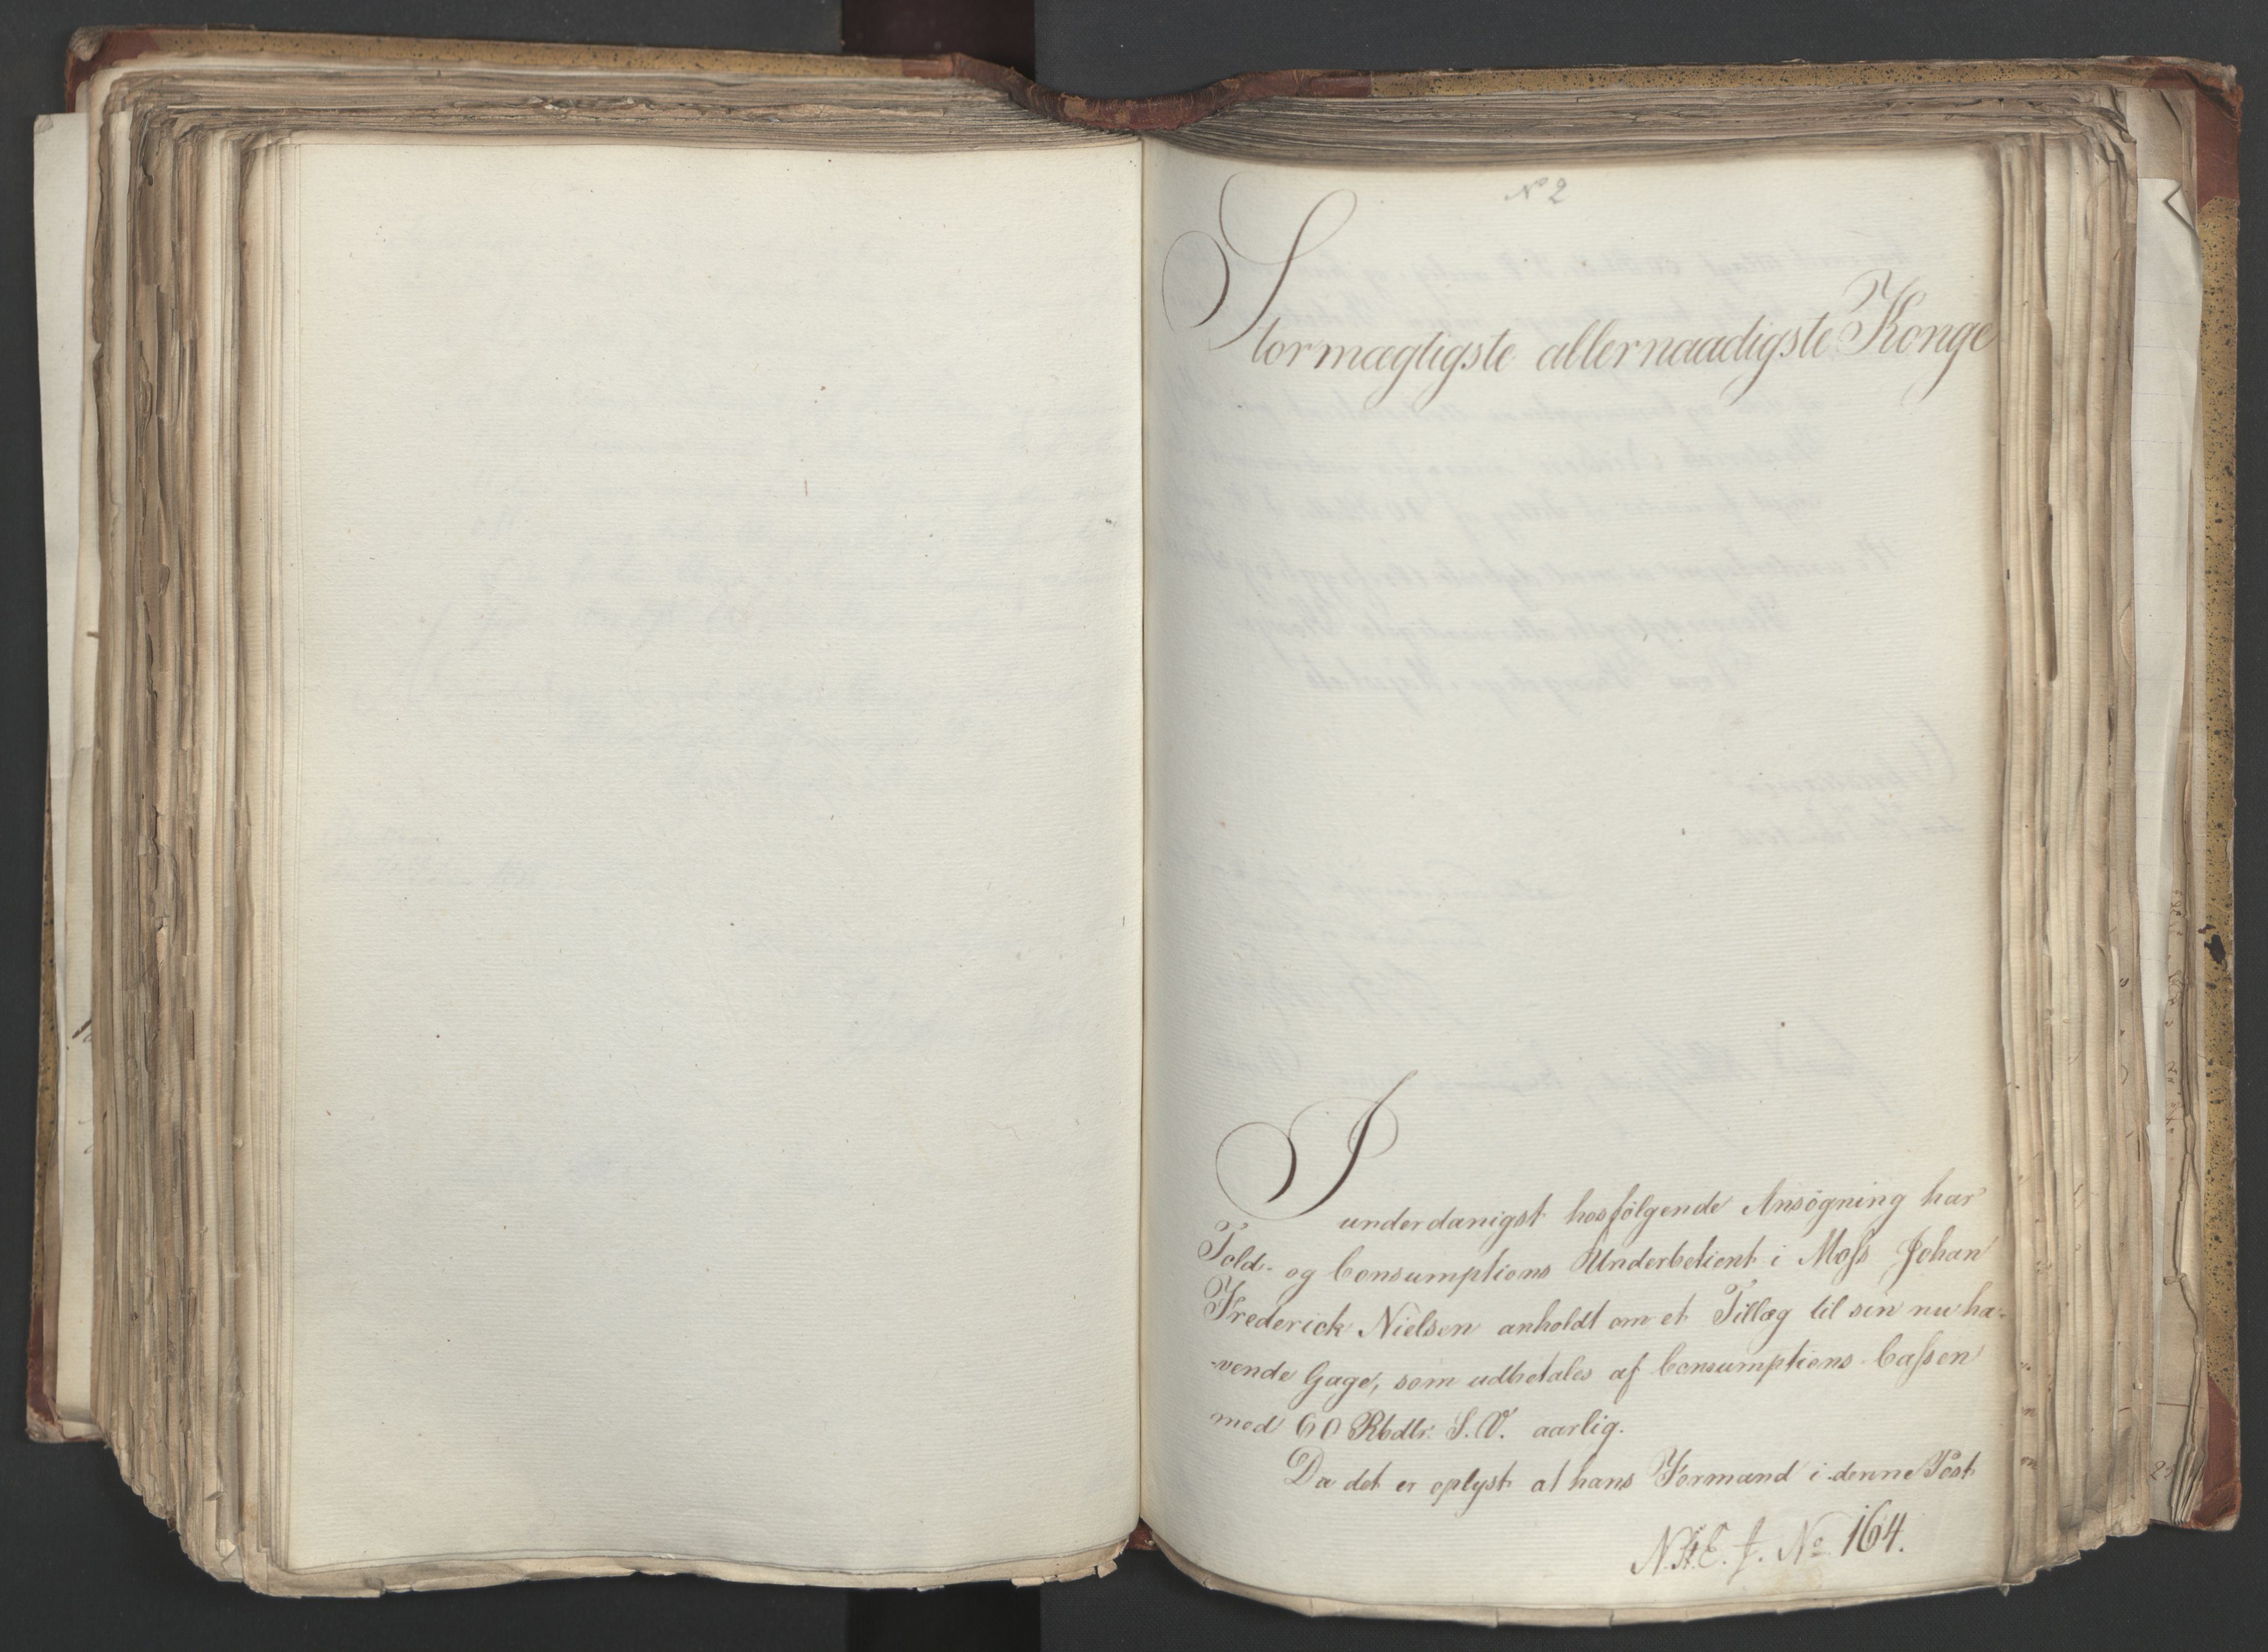 N° 2
Stormægtigste allernaadigste Konge
I underdanigst hosfølgende Ansøgning har
Told- og Consumptions Underbetient i Moss Johan
Frederick Nielsen anholdt om et Tillæg til sin nu ha-
-vende Gage, som udbetales af Consumptions-Cassen
med 60 Rbdlr. S.V. aarlig.
Da det er oplyst at hans Formand i denne Post
No 164.